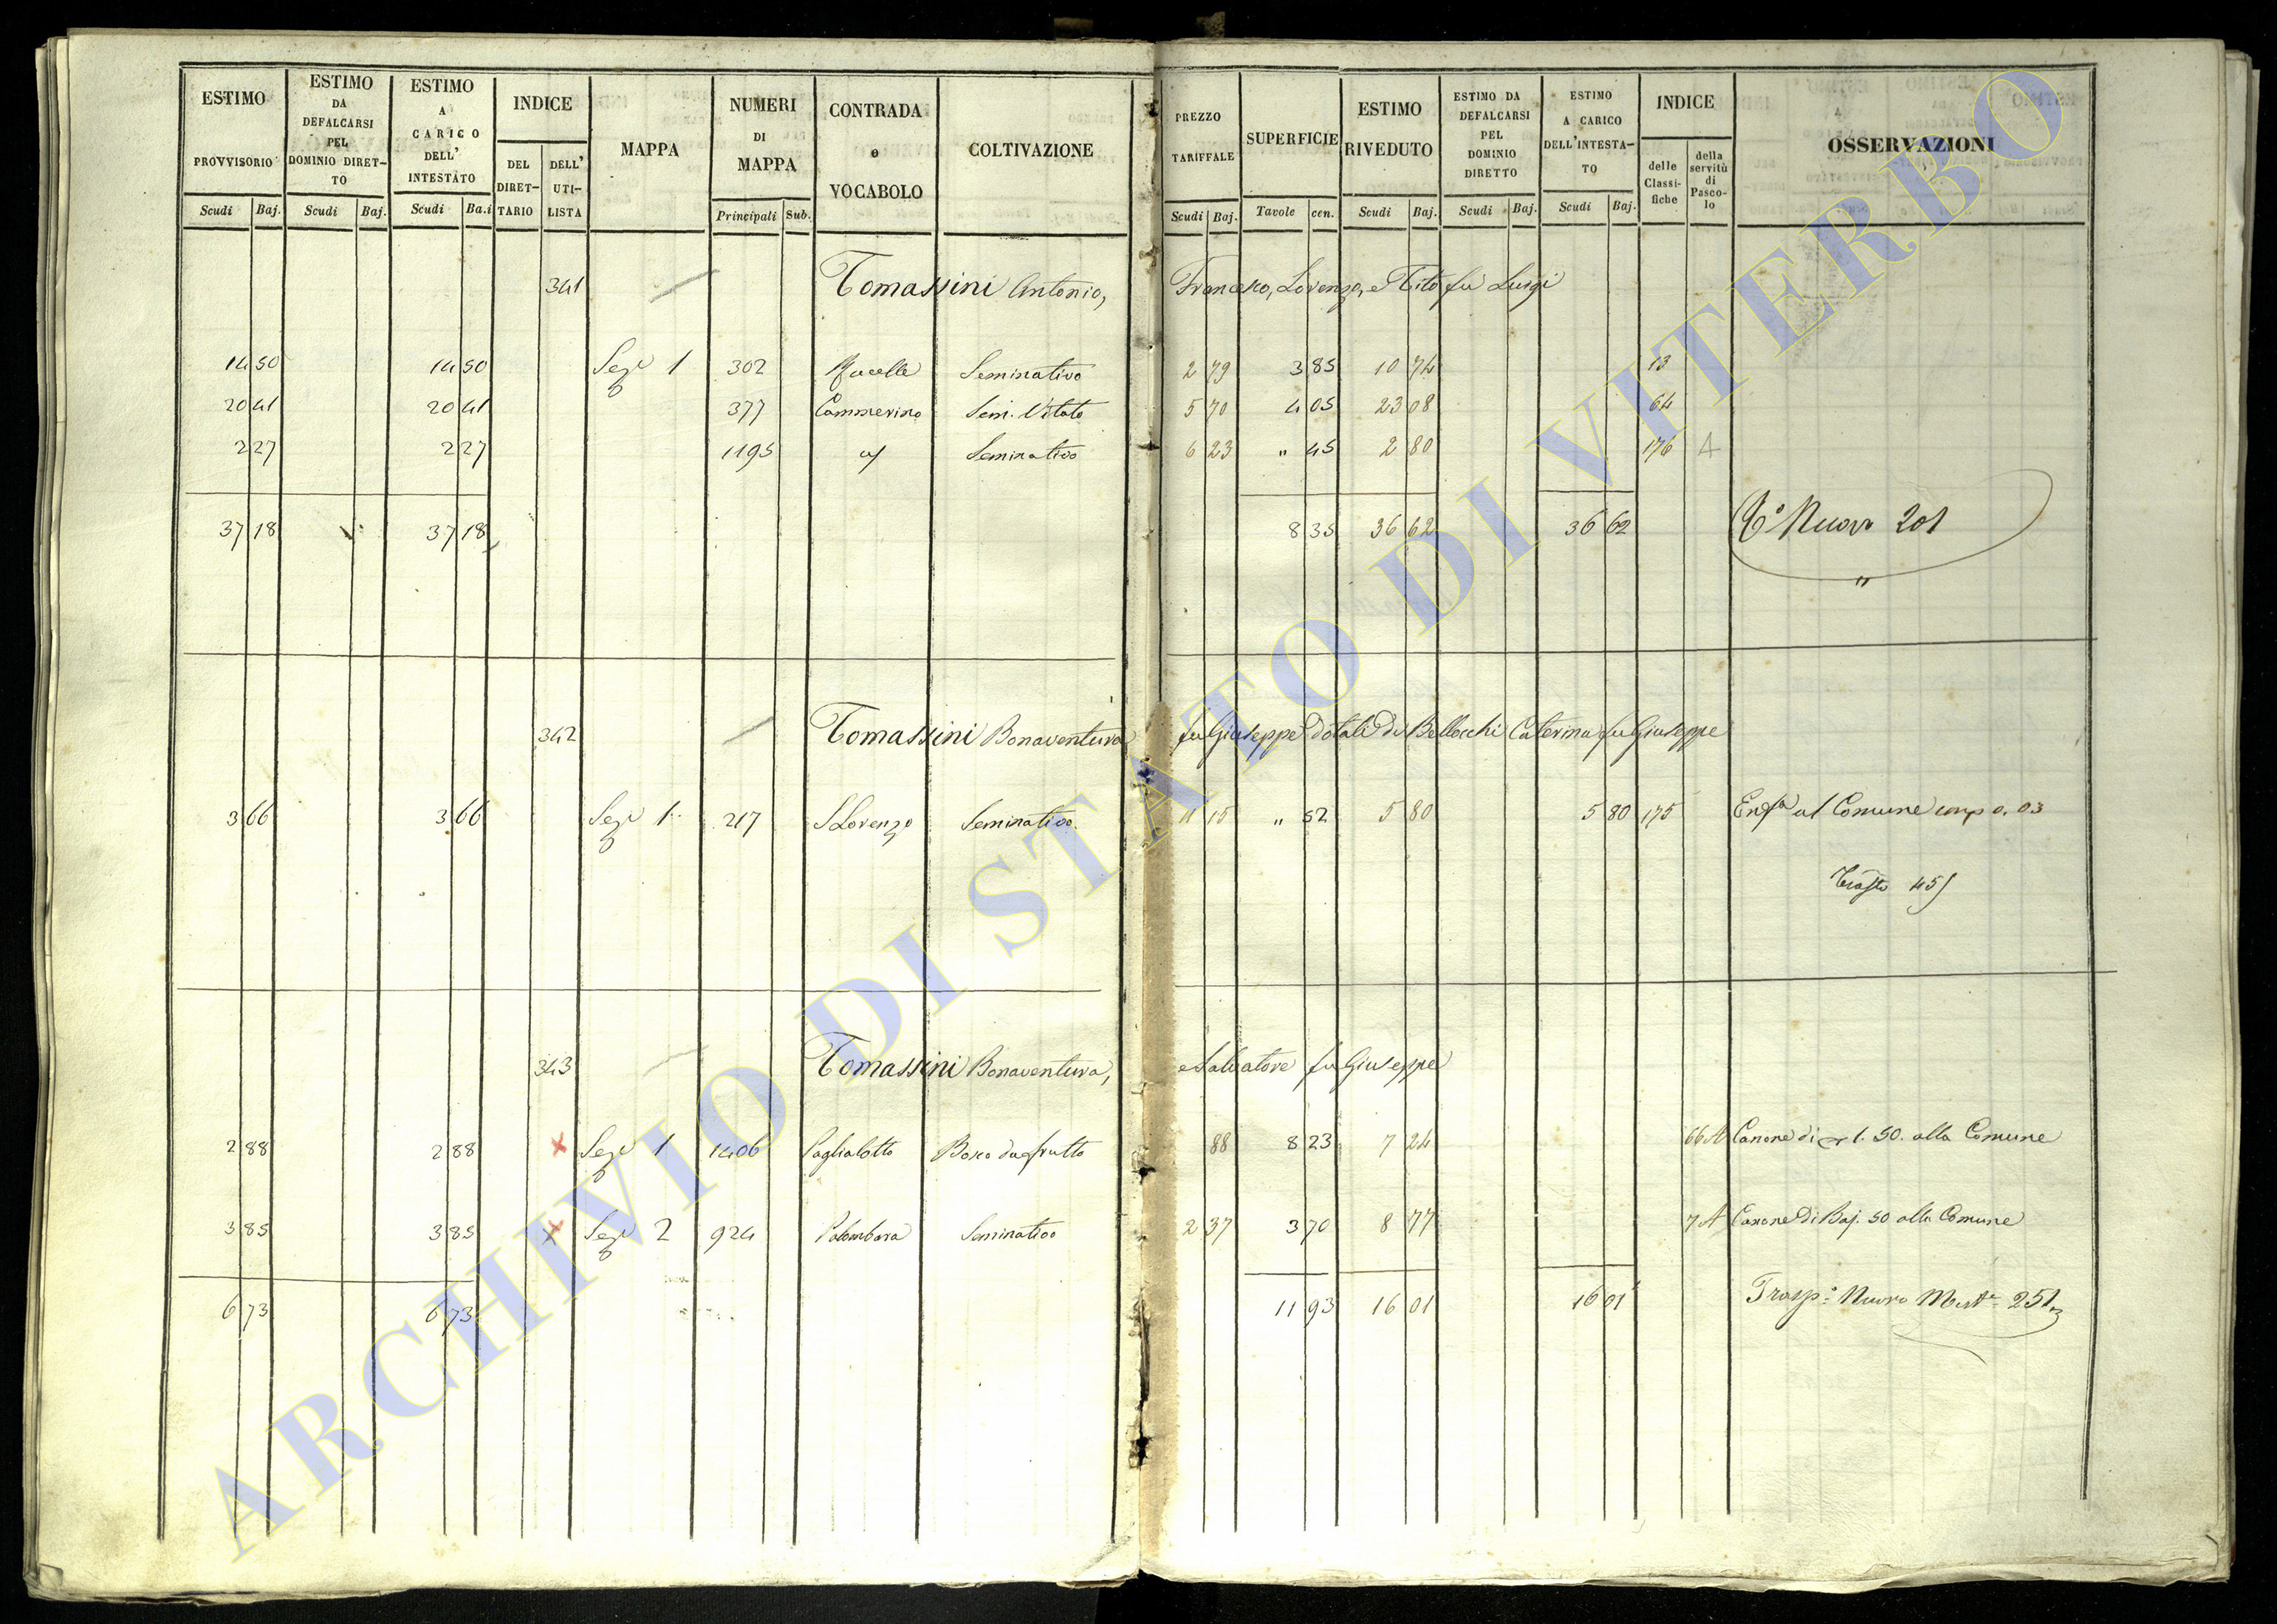 ESTIMO PROVVISORIO Scudi Baj.
ESTIMO DA DEFALCARSI PEL DOMINIO DIRET-TO Scudi Baj.
ESTIMO A CARICO DELL' INTESTATO Scudi Ba.i
INDICE DEL DIRET-TARIO DELL' UTI-LISTA
MAPPA
NUMERI DI MAPPA Principali Sub.
CONTRADA e VOCABOLO
COLTIVAZIONE
PREZZO TARIFFALE Scudi Baj.
SUPERFICIE Tavole cen.
ESTIMO RIVEDUTO Scudi Baj.
ESTIMO DA DEFALCARSI PEL DOMINIO DIRETTO Scudi Baj.
ESTIMO A CARICO DELL'INTESTA-TO Scudi Baj.
INDICE delle Classi-fiche della servitù di Pasco-lo
OSSERVAZIONI
341 Tomassini Antonio, Francesco, Lorenzo, e Tito fu Luigi
14 50 14 50 Sez.e 1 302 Seminativo 2 79 3 85 10 74 13
20 41 20 41 377 Cammerino Sem. Vitato 5 70 4 05 23 08 64
2 27 2 27 1195 Seminativo 6 23 " 45 2 80 176 A
37 18 37 18 8 35 36 62 36 62 Nuova 201
"
342 Tomassini Bonaventura fu Giuseppe dotali di Bellocchi Caterina fu Giuseppe
3 66 3 66 Sez.e 1 217 S Lorenzo Seminativo 11 15 " 52 5 80 5 80 175 Enf.a al Comune 0.03
451
343 Tomassini Bonaventura, e Salvatore fu Giuseppe
2 88 2 88 x Sez.e 1 1406 Paglialotto Bosco da frutto 88 8 23 7 24 66 A Canone di 1.50. alla Comune
3 85 3 85 x Sez.e 2 924 Palombara Seminativo 2 37 3 70 8 77 7 A Canone di Baj. 50 alla Comune
6 73 6 73 11 93 16 01 16 01 Trasp.o Nuova 251
ARCHIVIO DI STATO DI VITERBO